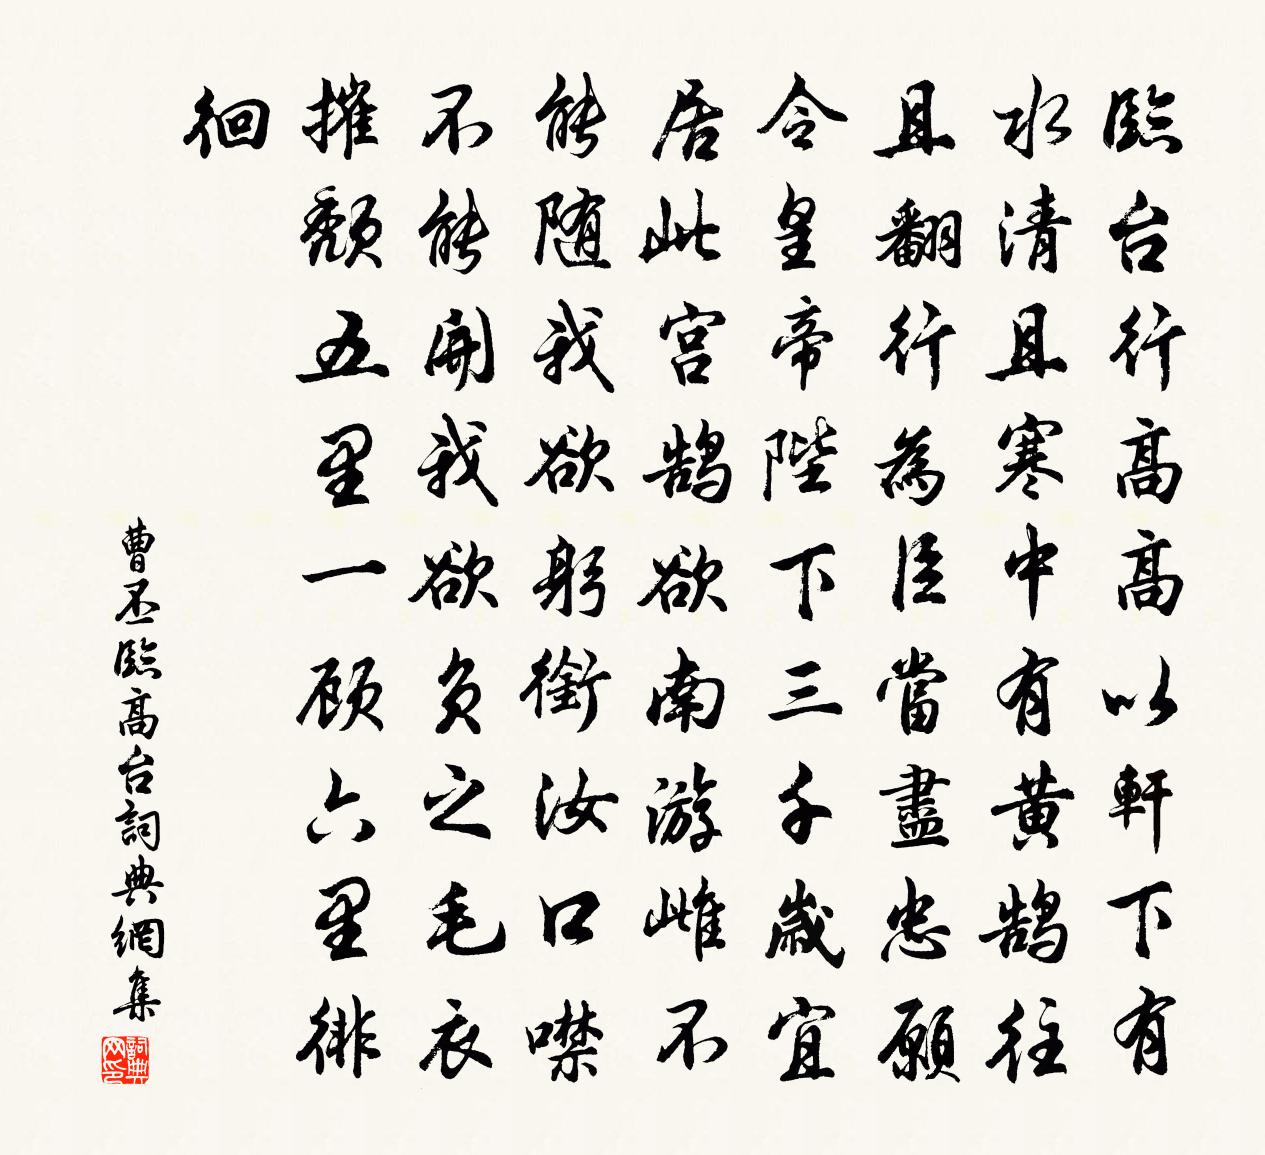 臨台行高高以軒下有
水清且寒中有黄鹄往
且翻行為臣當盡忠願
令皇帝陛下三千歲宜
居此宫鹄欲南游雌不
能随我欲躬銜汝口噤
不能開我欲負之毛衣
摧颓五里一顾六里徘
徊
曹丕臨高台詞典網集
詞典网印